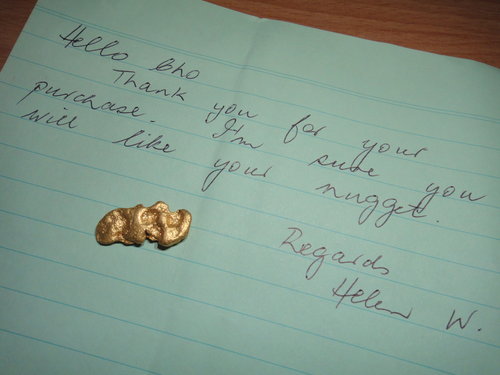 Hello Gho
Thank you for your
purchase. I'm sure you
will like your nugget.
Regards
Helen W.